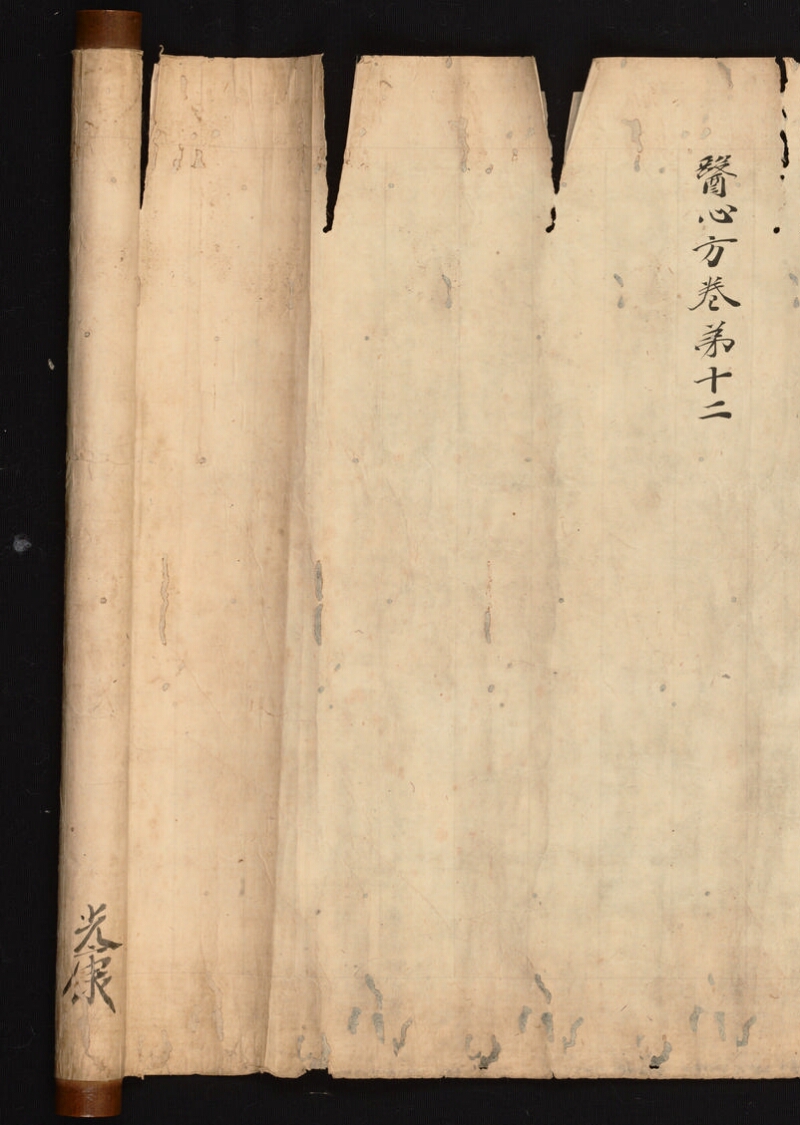 醫心方卷第十二
光康